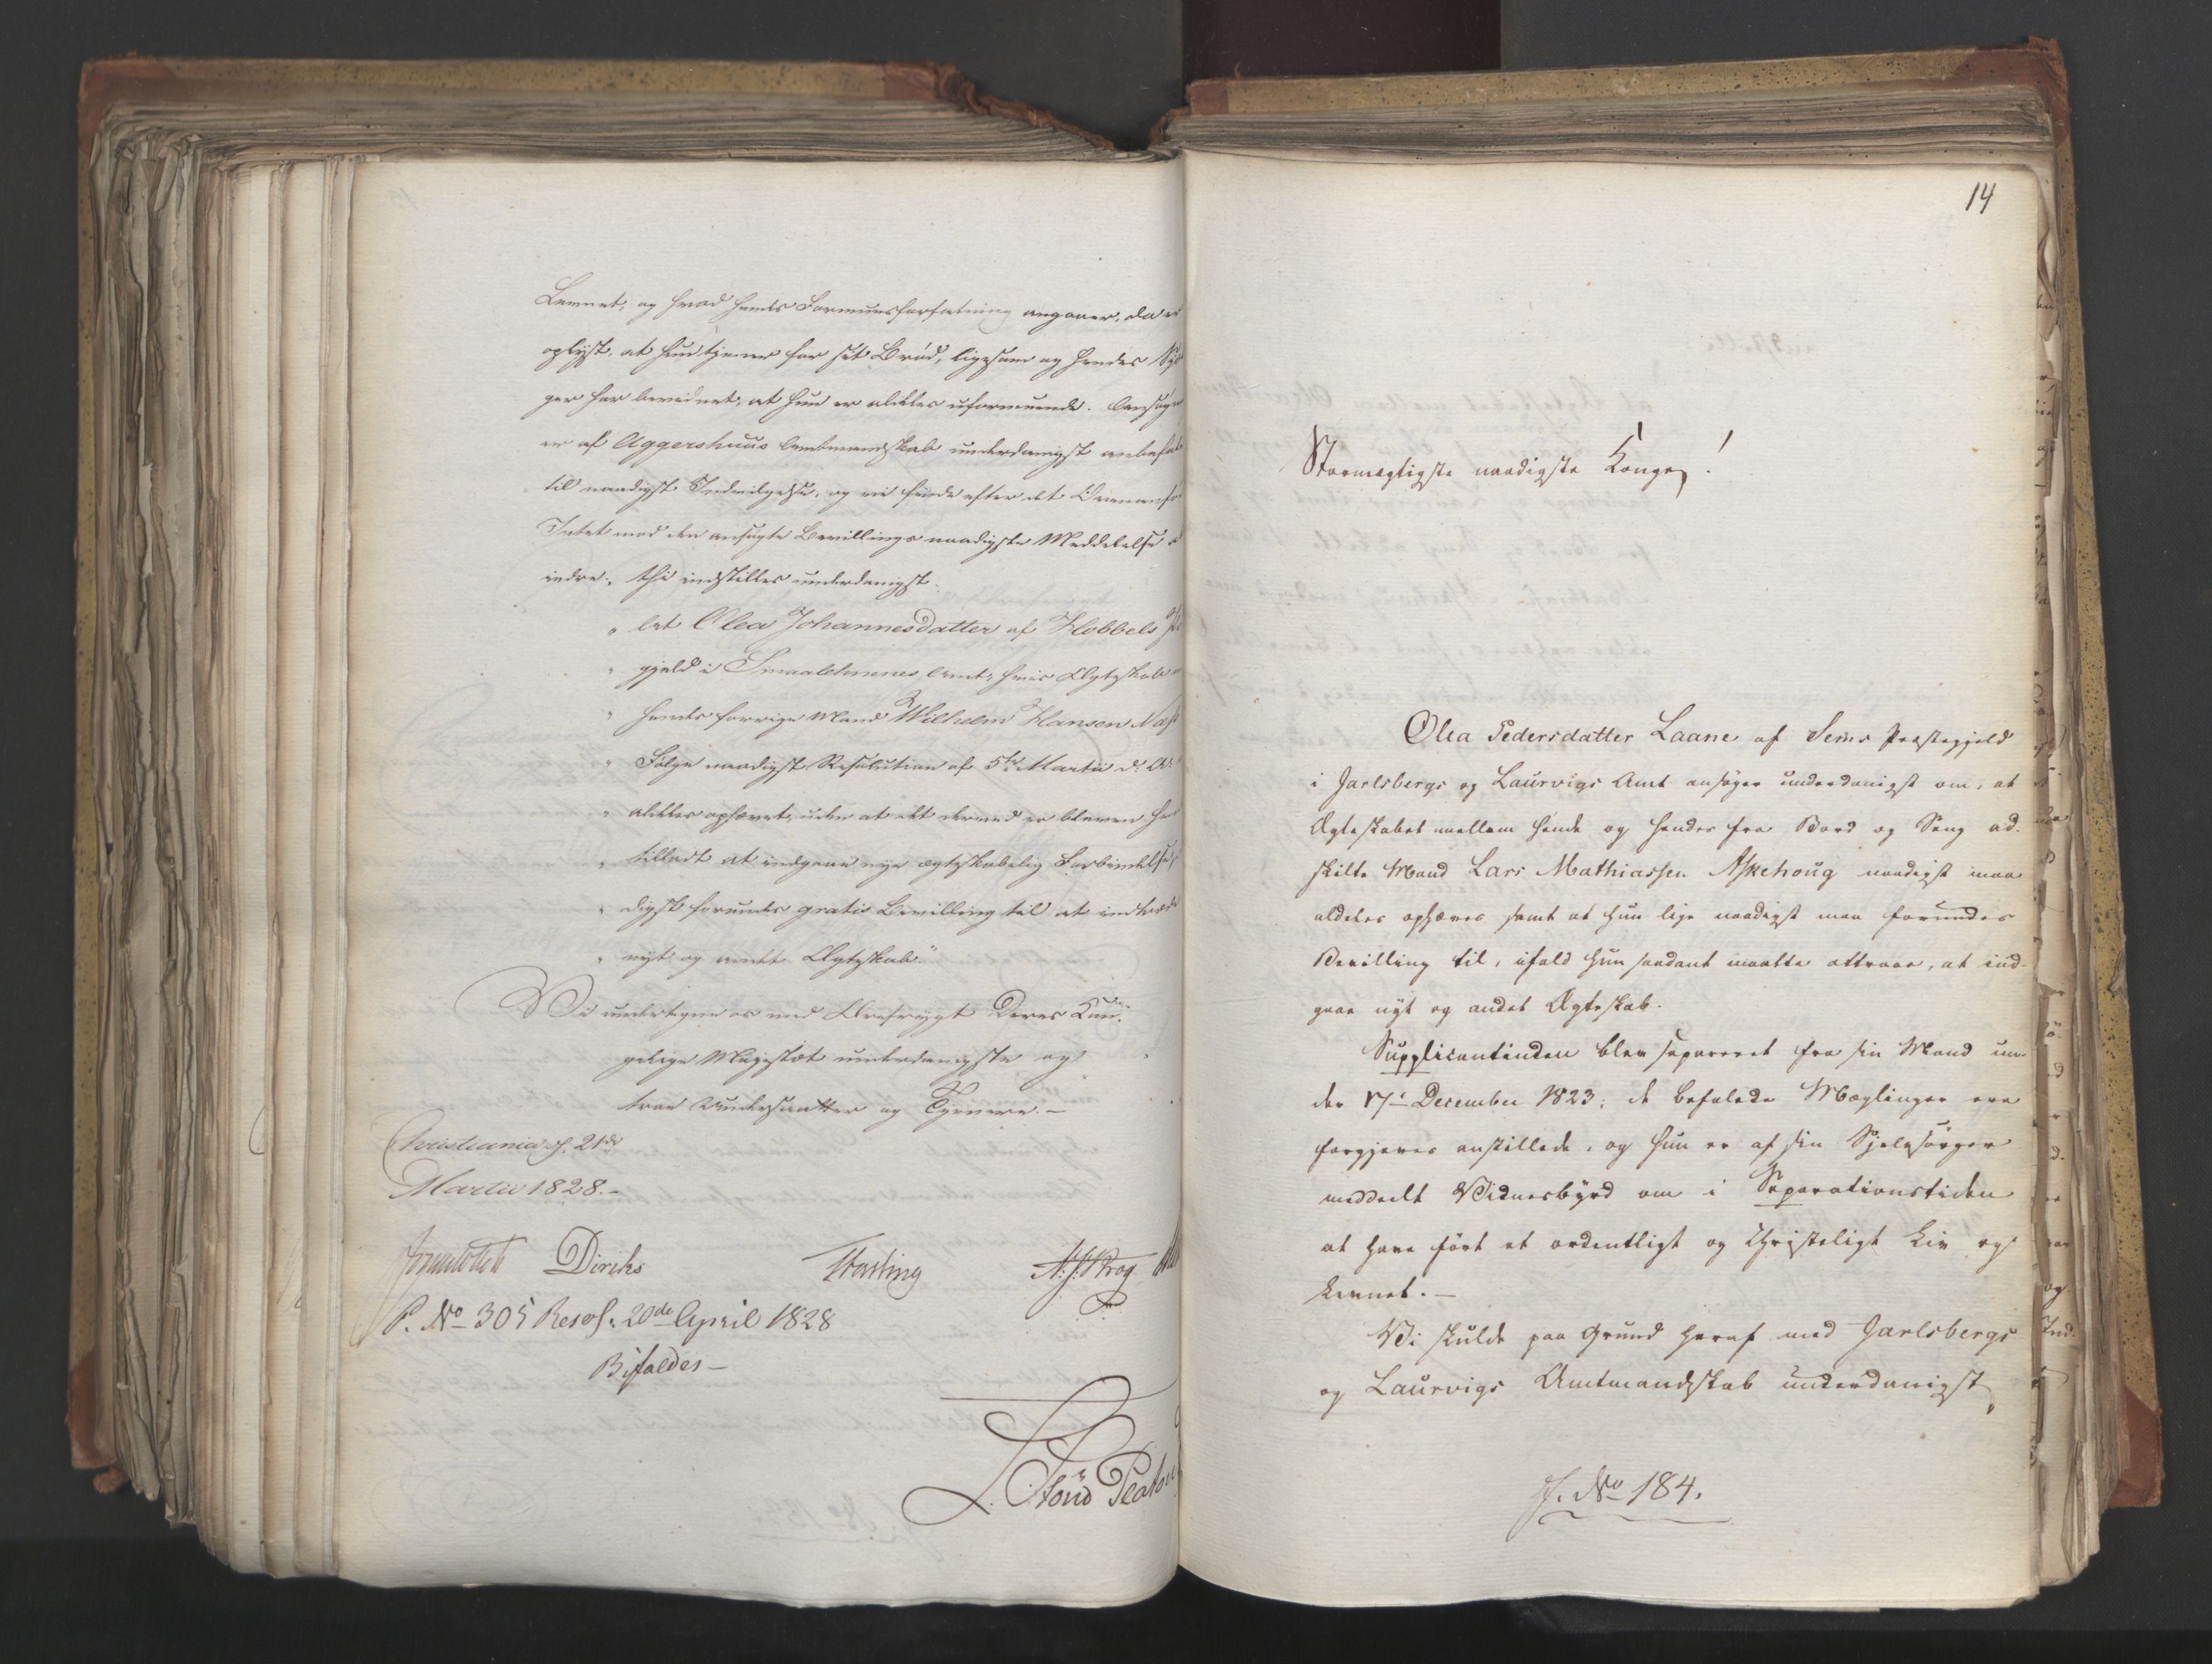 Levnet, og hvad hendes Formuesforfatning angaaer, da er
oplyst, at hun tjener for sit Brød, ligesom og hendes
ger har bevidnet, at hun er aldeles uformuende.
er af Aggershuus Amtmandskab underdanigst
til naadigst Indvilgelse, og vi finde efter det
Intet mod den ansøgte Bevillings naadigste Meddelelse
indre, thi indstilles underdanigst:
" at Olea Johannesdatter af Hobbels
" gjeld i Smaalehnenes Amt, hvis Ægteskab
" hendes forrige Mand Wilhelm Hansen
" Følge naadigst Resolution af 5te Martii d. A.
" aldeles ophævet, uden at det derved er bleven
" tilladt at indgaae nye ægteskabelig
" digst forundes gratis Bevilling til at indtræde
" nyt og andet Ægteskab."
Vi undertegne os med Ærefrygt Deres Kon-
gelige Majestæt underdanigste og
troe Undersaatter og Tjenere. –
Christiania d. 21de
Martii 1828. –
Diriks
P. No 305 Resol. 20de April 1828
Bifaldes –
14
Stormægtigste naadigste Konge!
Olea Pedersdatter Laane af Sems Præstegjeld
i Jarlsbergs og Laurvigs Amt ansøger underdanigst om, at
Ægteskabet mellem hende og hendes fra Bord og Seng ad-
skilte Mand Lars Mathiassen Askehoug naadigst maa
aldeles ophæves samt at hun lige naadigst maa forundes
Bevilling til, ifald hun saadant maatte attraae, at ind-
gaae nyt og andet Ægteskab.
Supplicantinden blev separeret fra sin Mand un-
der 17de December 1823; de befalede Mæglinger ere
forgjeves anstillede, og hun er af sin Sjelesørger
meddeelt Vidnesbyrd om i Separationstiden
at have ført et ordentligt og Christeligt Liv og
Levnet. –
Vi skulde paa Grund heraf med Jarlsbergs
og Laurvigs Amtmandskab underdanigst
J. No 184.